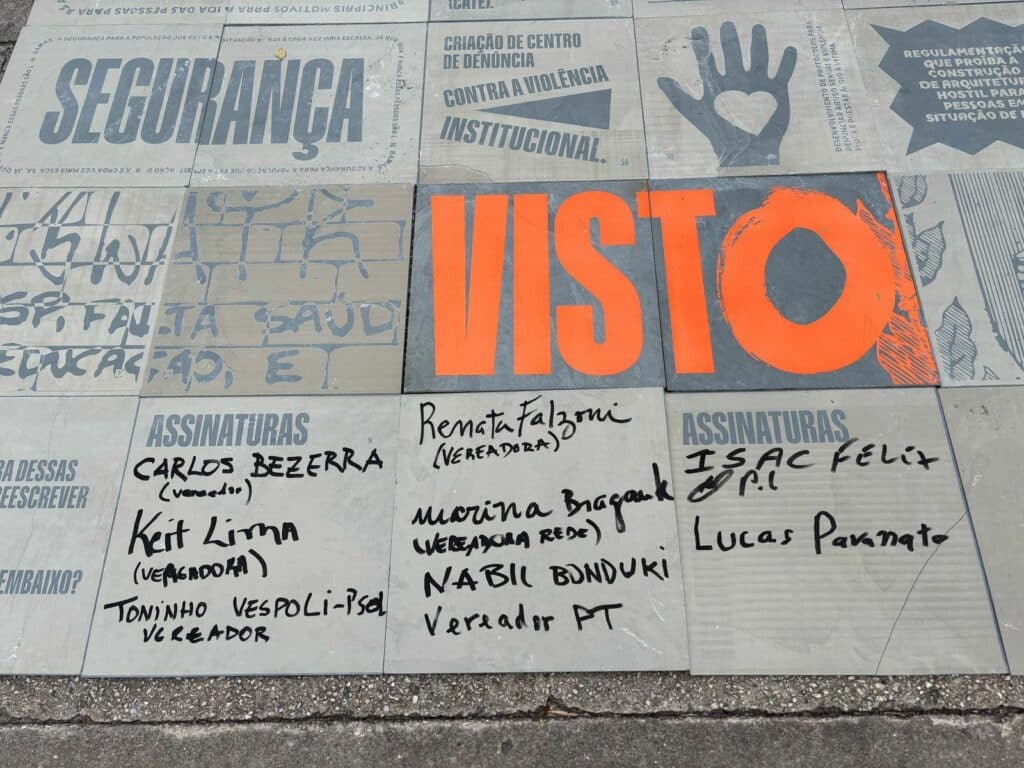 PRINCIPAIS MOTIVOS PARA A IDA DAS PESSOAS PARA A
(CATE).
SEGURANÇA
CRIAÇÃO DE CENTRO
DE DENÚNCIA
CONTRA A VIOLÊNCIA
INSTITUCIONAL.
58
DESENVOLVIMENTO DE PROTOCOLOS PARA
DENUNCIAR ABUSO SEXUAL E
REGULAMENTAÇÃO
QUE PROÍBA A
CONSTRUÇÃO
DE ARQUITETURA
HOSTIL PARA
PESSOAS EM
SITUAÇÃO DE
SP, FALTA SAÚD
EDUCAÇÃO, E
VISTO
RA DESSAS
REESCREVER
EMBAIXO?
ASSINATURAS
CARLOS BEZERRA
(vereador)
Keit Lima
(VEREADORA)
TONINHO VESPOLI-PSOL
VEREADOR
Renata Falzoni
(VEREADORA)
Marina Bragante
(VEREADORA REDE)
NABIL BONDUKI
Vereador PT
ASSINATURAS
ISAC FELIX
P.L
Lucas Pavanato